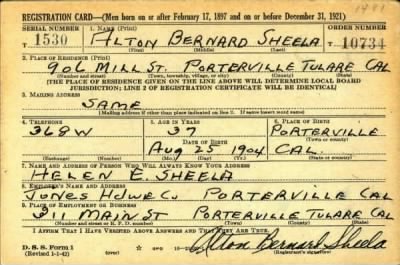 1941
REGISTRATION CARD—(Men born on or after February 17, 1897 and on or before December 31, 1921)
SERIAL NUMBER 1. NAME (Print) ORDER NUMBER
T 1530 ALTON BERNARD SHEELA T 10734
(First) (Middle) (Last)
2. PLACE OF RESIDENCE (Print)
906 MILL ST. PORTERVILLE TULARE CAL
(Number and street) (Town, township, village, or city) (County) (State)
[THE PLACE OF RESIDENCE GIVEN ON THE LINE ABOVE WILL DETERMINE LOCAL BOARD
JURISDICTION; LINE 2 OF REGISTRATION CERTIFICATE WILL BE IDENTICAL]
3. MAILING ADDRESS
SAME
[Mailing address if other than place indicated on line 2. If same insert word same]
4. TELEPHONE 5. AGE IN YEARS 6. PLACE OF BIRTH
368W 37 PORTERVILLE
DATE OF BIRTH (Town or county)
AUG 25 1904 CAL.
(Exchange) (Number) (Mo.) (Day) (Yr.) (State or country)
7. NAME AND ADDRESS OF PERSON WHO WILL ALWAYS KNOW YOUR ADDRESS
HELEN E. SHEELA
8. EMPLOYER'S NAME AND ADDRESS
JONES HDWE Co PORTERVILLE CAL
9. PLACE OF EMPLOYMENT OR BUSINESS
311 MAIN ST PORTERVILLE TULARE CAL
(Number and street or R. F. D. number) (Town) (County) (State)
I AFFIRM THAT I HAVE VERIFIED ABOVE ANSWERS AND THAT THEY ARE TRUE.
D. S. S. Form 1
(Revised 1-1-42) Alton Bernard Sheela